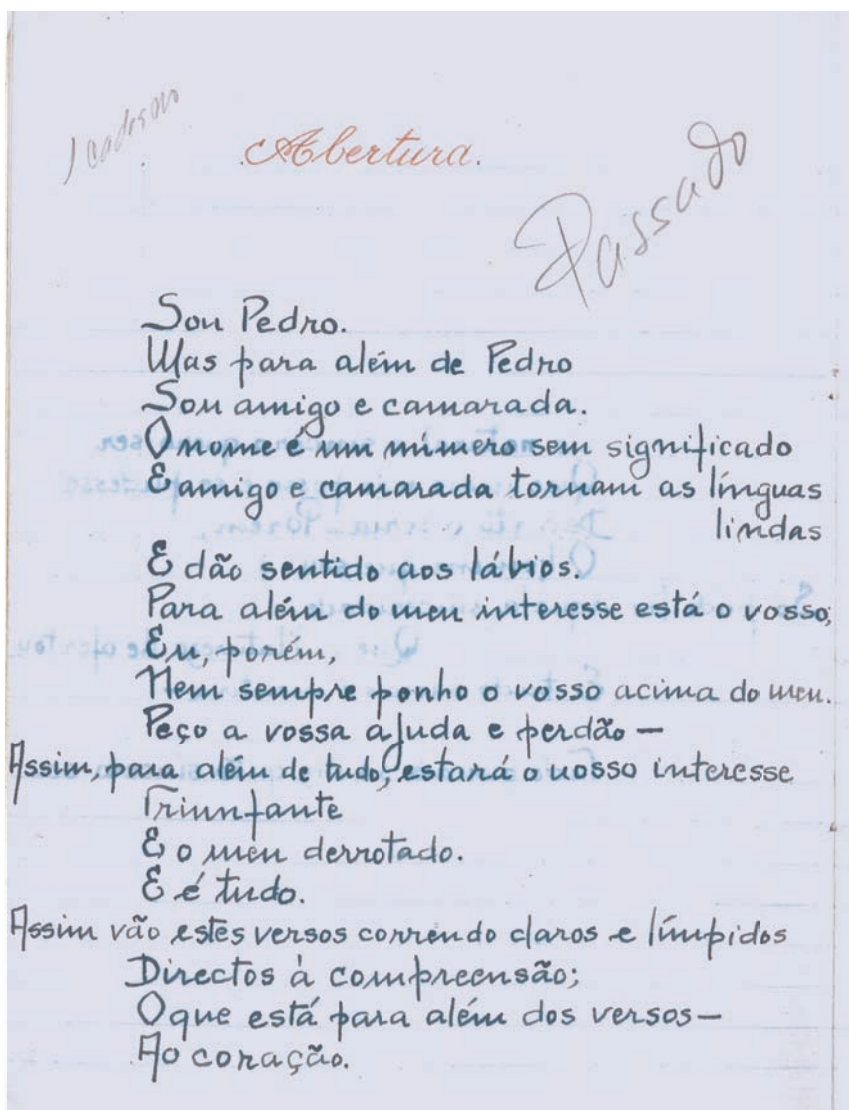 1 caderno
Abertura.
Passado
Sou Pedro.
Mas para além de Pedro
Sou amigo e camarada.
O nome é um número sem significado
E amigo e camarada tornam as línguas
lindas
E dão sentido aos lábios.
Para além do meu interesse está o vosso;
Eu, porém,
Nem sempre ponho o vosso acima do meu.
Peço a vossa ajuda e perdão —
Assim, para além de tudo, estará o nosso interesse
Triunfante
E o meu derrotado.
E é tudo.
Assim vão estes versos correndo claros e límpidos
Directos à compreensão;
O que está para além dos versos —
Ao coração.